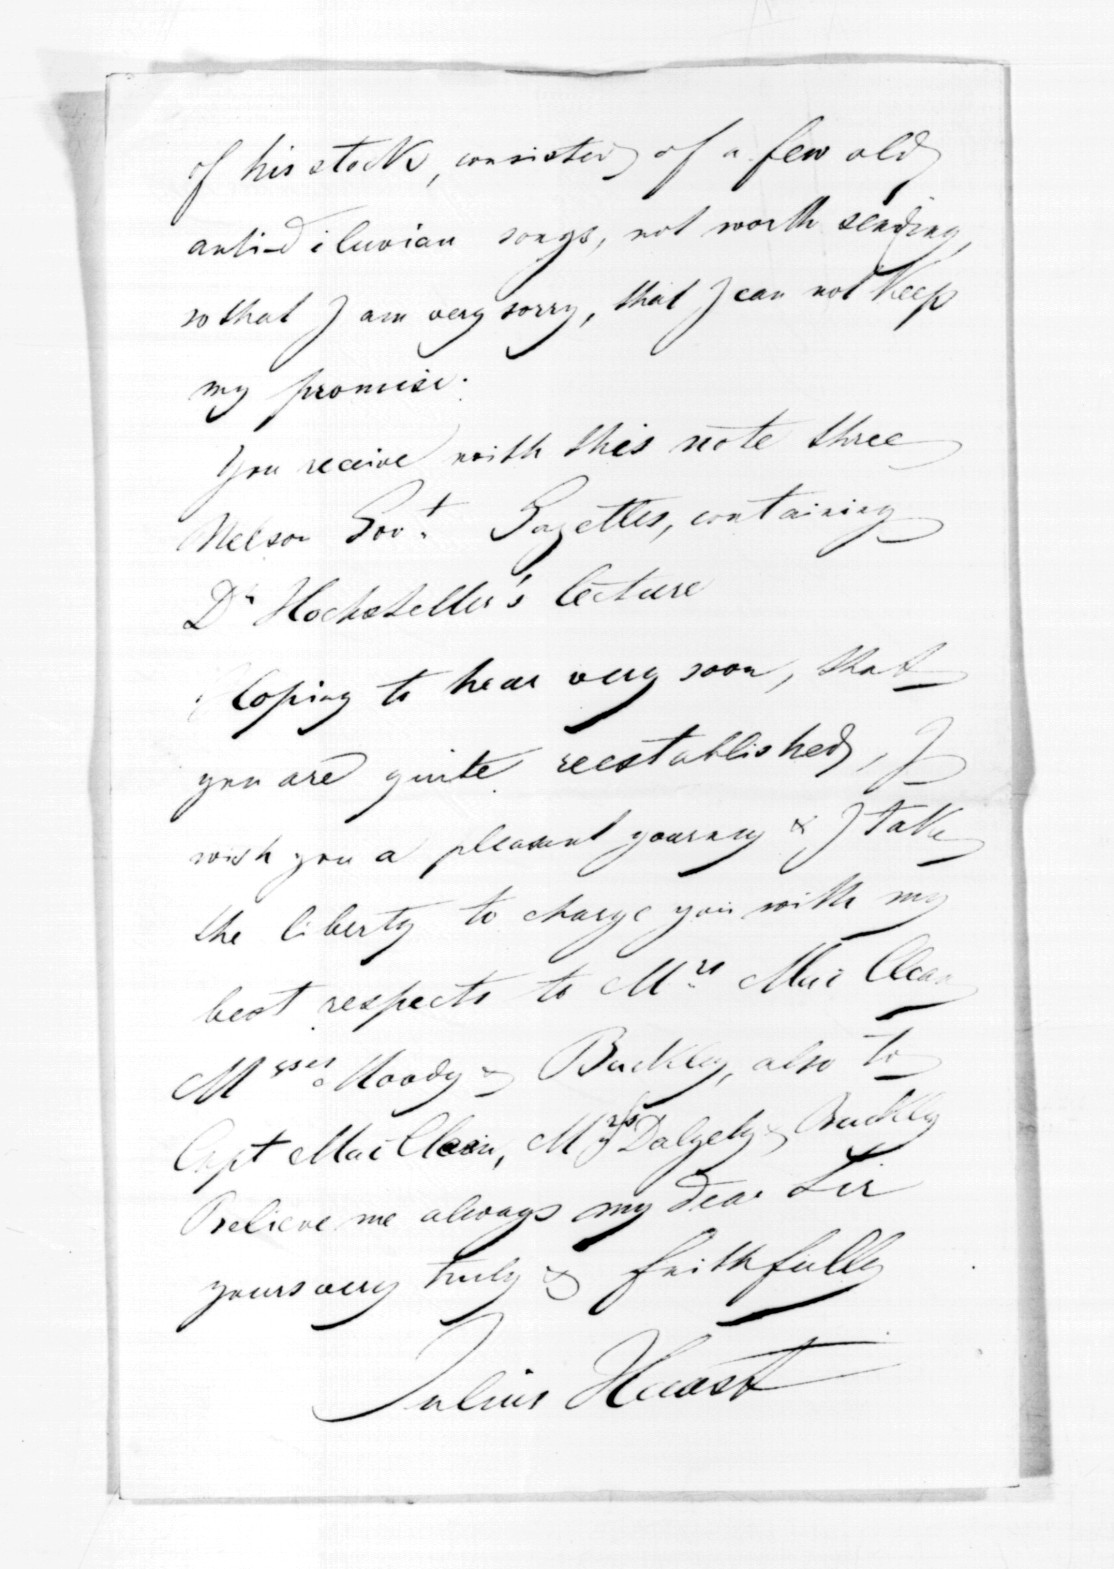 of his stock, consisted of a few old
anti-diluvian songs, not worth sending,
so that I am very sorry, that I can not keep
my promise.
You receive with this note three
Nelson Govt. Gazettes, containing
Dr Hochstetter's lecture
Hoping to hear very soon, that
you are quite reestablished, I
wish you a pleasant yourney & I take
the liberty to charge you with my
best respects to Mrs. Mac Clean
Moody & Buckley, also to
Capt Mac Clean, Dalgety & Buckley
Believe me always my dear Sir
yours very truly & faithfully
Julius Haast